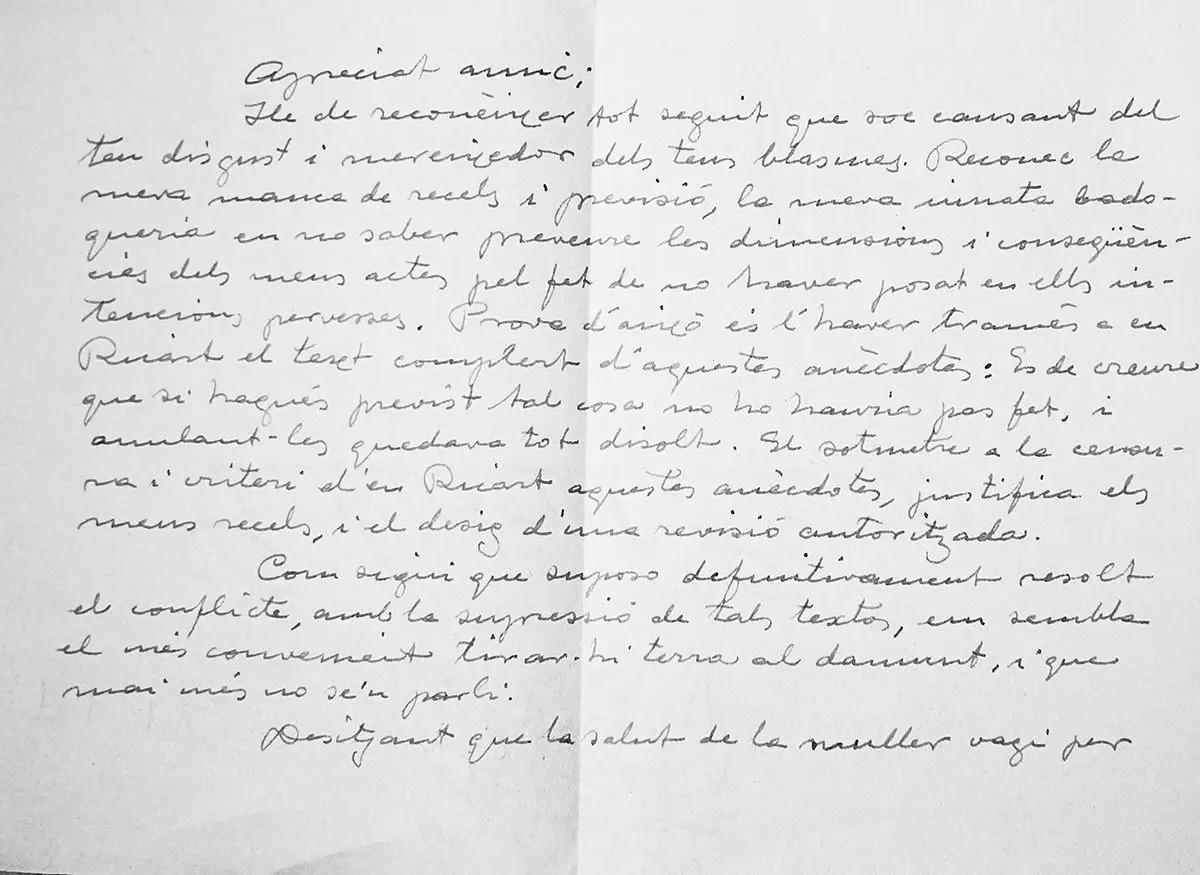 Apreciat amic;
He de reconèixer tot seguit que soc causant del
teu disgust i mereixedor dels teus blasmes. Reconec la
meva manca de recels i previsió, la meva innata bado-
queria en no saber preveure les dimensions i conseqüèn-
cies dels meus actes pel fet de no haver posat en ells in-
tencions perverses. Prova d'aixó és l'haver tramès a en
Ricart el text complert d'aquestes anècdotes: Es de creure
que si hagués previst tal cosa no ho hauria pas fet, i
anulant-les quedava tot disolt. El sotmetre a la censu-
ra i criteri d'en Ricart aquestes anècdotes, justifica els
meus recels, i el desig d'una revisió autoritzada.
Com sigui que suposo definitivament resolt
el conflicte, amb la supressió de tals textos, em sembla
el més convenient tirar-hi terra al damunt, i que
mai més no se'n parli.
Desitjant que la salut de la muller vagi per